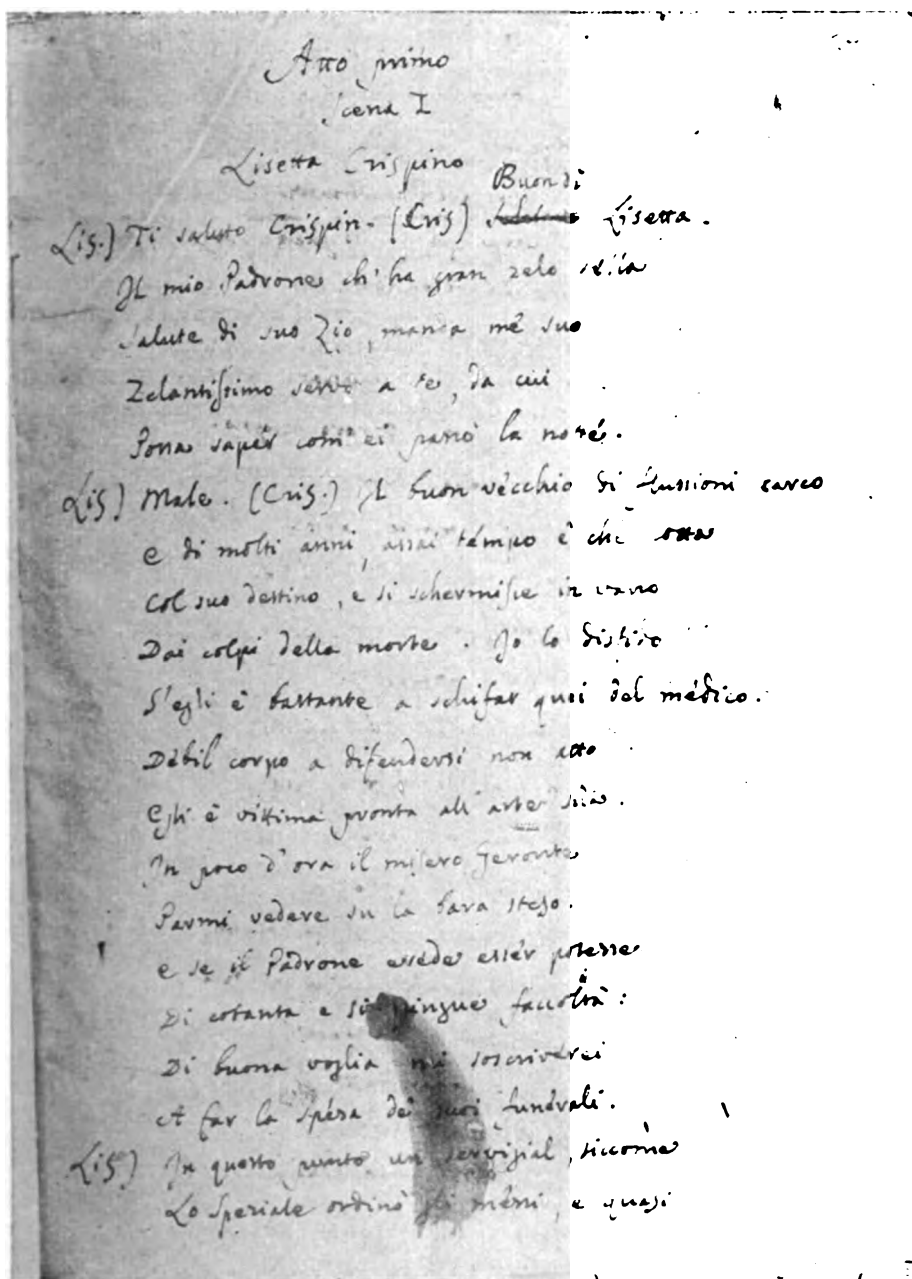 Atto primo
Scena I
Lisetta Crispino
Buon dì
Lis.) Ti saluto Crispin. (Cris) Lisetta.
Il mio Padrone ch' ha gran zelo della
Salute di suo Zio, manda me suo
Zelantissimo servo a te, da cui
Possa saper com' ei passò la notte.
Lis) Male. (Cris.) Il buon vecchio di flussioni carco
E di molti anni, assai tempo è che lotta
Col suo destino, e si schermisce in vano
Dai colpi della morte. Io lo disfido
S'egli è bastante a schifar quei del médico.
Débil corpo a difendersi non atto
Egli è vittima pronta all' arte sua.
In poco d' ora il misero Geronte
Parmi vedere su la bara steso.
E se il Padrone erede esser potesse
Di cotanta e sì pingue faccoltà:
Di buona voglia mi soscriverei
A far la spesa de' suoi funerali.
Lis) In questo punto un servizial, siccome
Lo speziale ordinò gli messi, e quasi